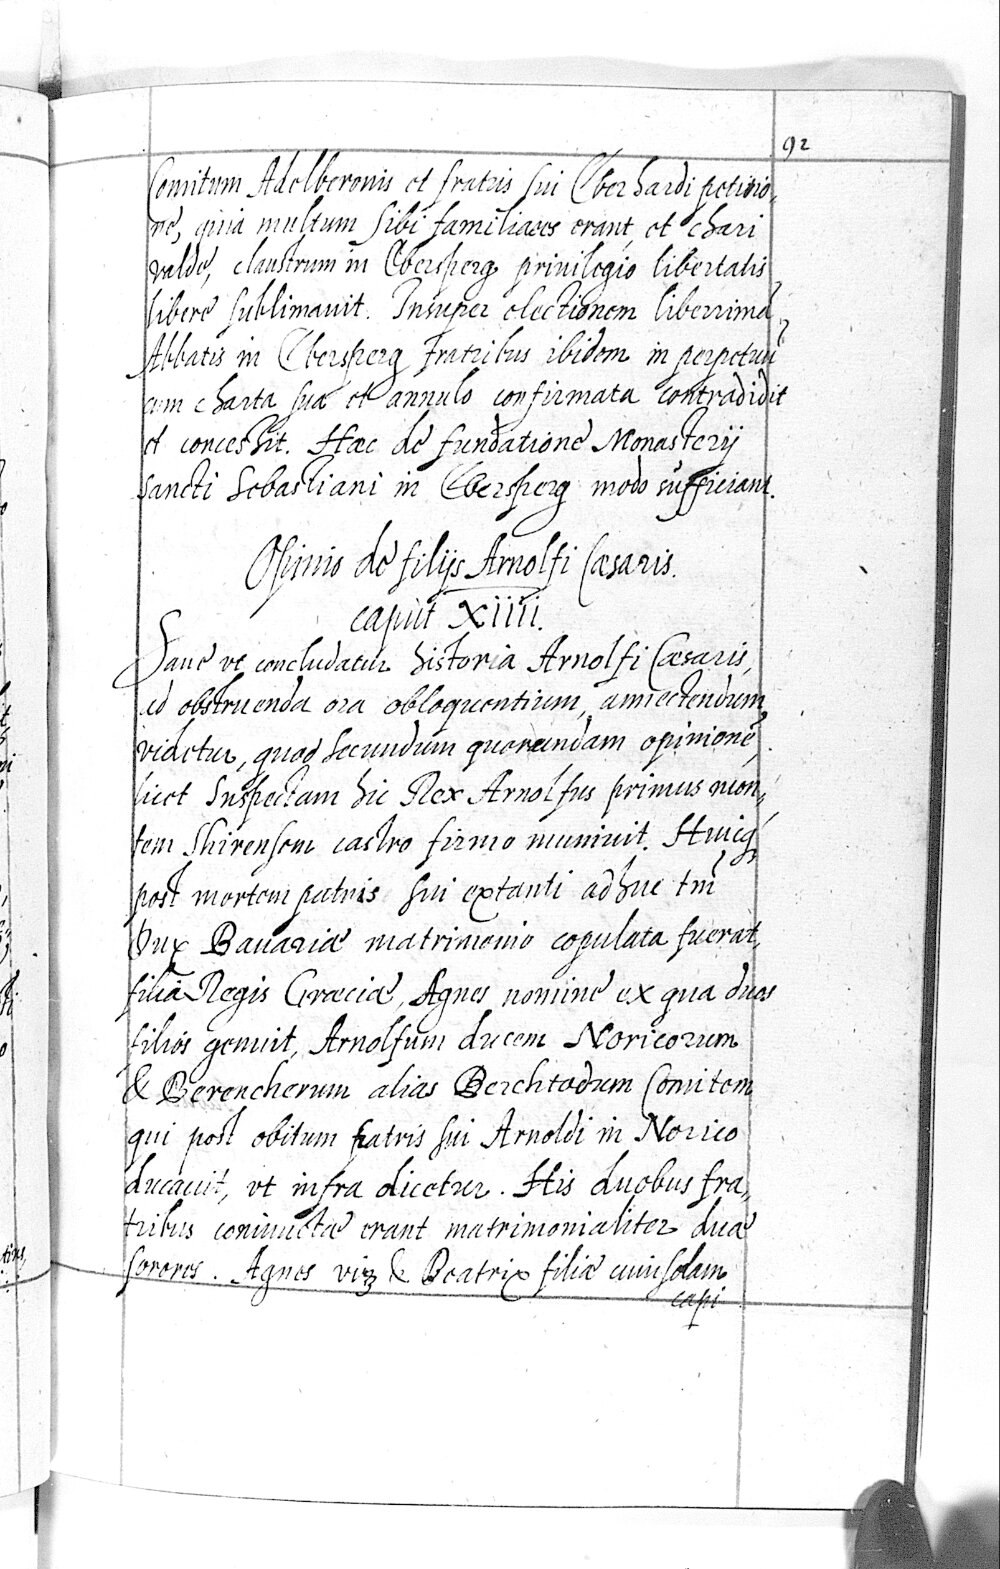 92
Comitum Adelberonis et fratris sui Eberhardi petitio,
ne, quia multum sibi familiares erant, et chari
valde, claustrum in Ebersperg privilegio libertatis
libere sublimauit. Insuper electionem liberrimā
Abbatis in Ebersperg Fratribus ibidem in perpetuū
cum charta sua et annulo confirmata contradidit
et concessit. Hæc de fundatione Monasterij
Sancti Sebastiani in Ebersperg modo sufficiant.
Opinio de filijs Arnolfi Cæsaris.
caput XIIII.
Sane vt concludatur historia Arnolfi Cæsaris,
ad obstruenda ora obloquentium, annectendum
videtur, quod secundum quorundam opinione,
licet Suspectam hic Rex Arnolfus primus mon,
tem Shirensem castro firmo muniuit. Huicq
post mortem patris sui extanti adhuc tm̄
Dux Bauariæ matrimonio copulata fuerat,
filia Regis Græciæ, Agnes nomine ex qua duos
filios genuit, Arnolfum ducem Noricorum
& Berencherum alias Berchtodum Comitem
qui post obitum fratris sui Arnoldi in Norico
ducauit, vt infra dicetur. His duobus fra,
tribus coniunctæ erant matrimonialiter duæ
sorores. Agnes viz & Beatrix filiæ cuiusdam
capi